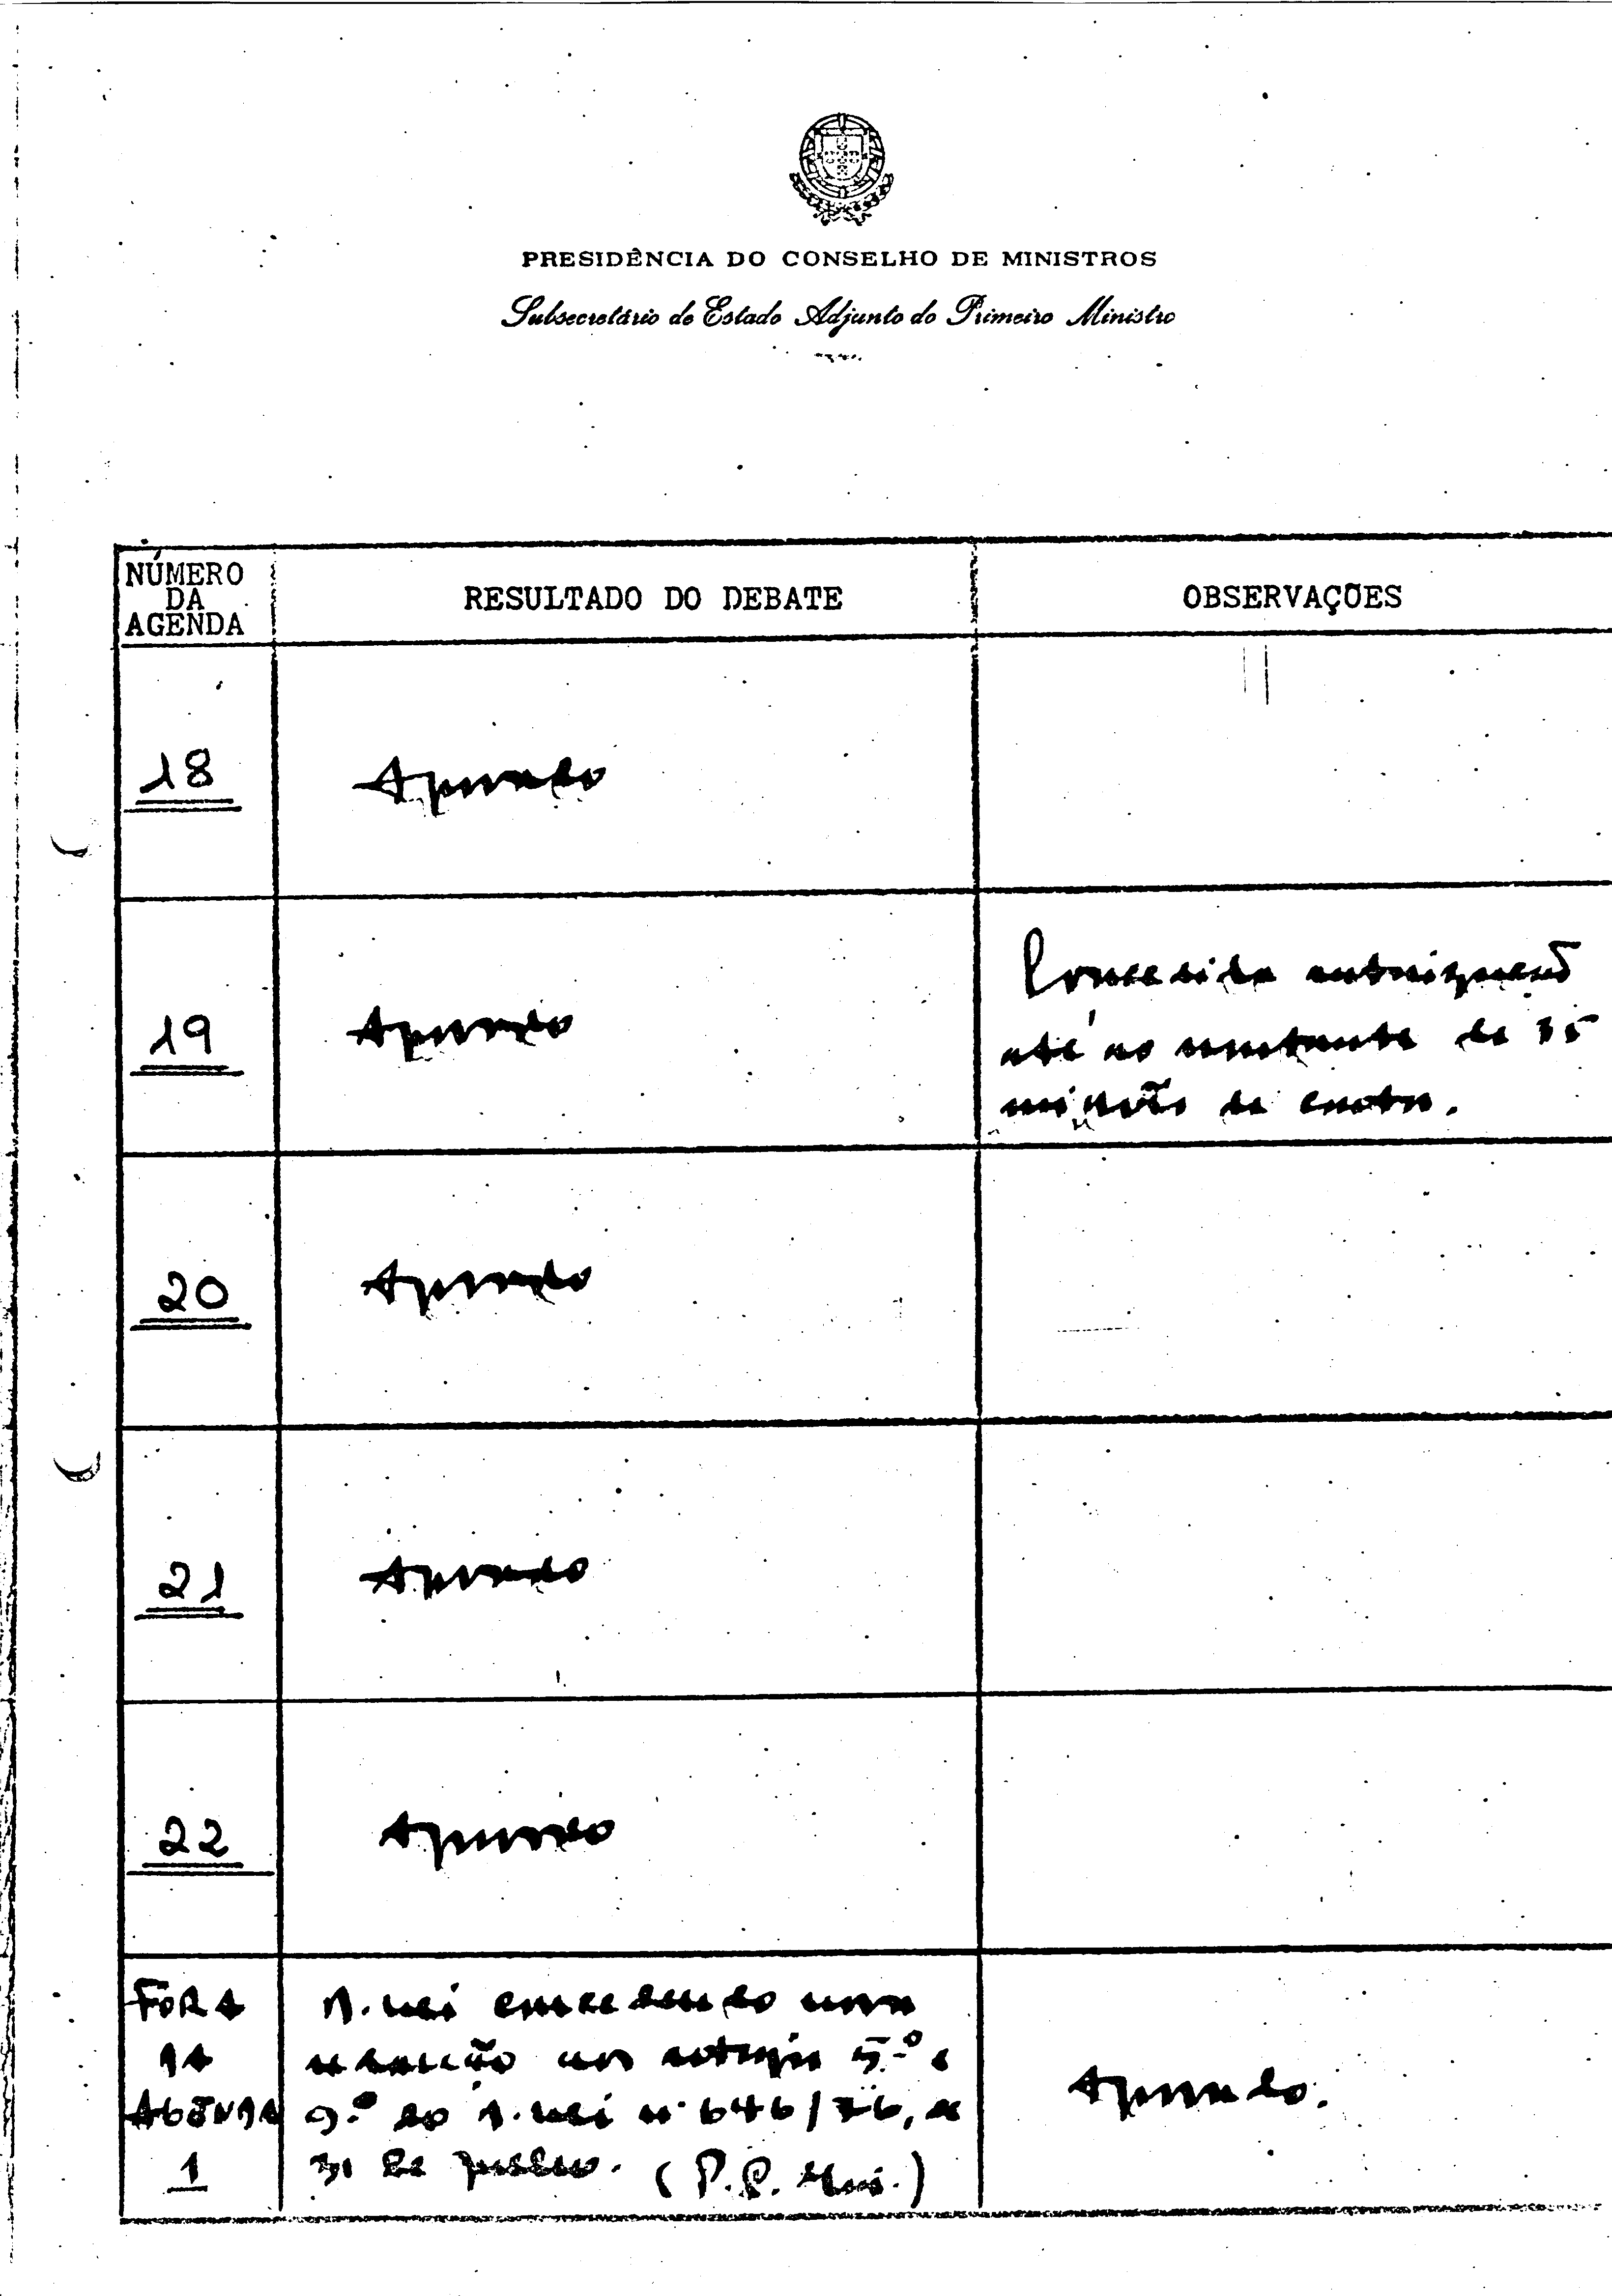 PRESIDÊNCIA DO CONSELHO DE MINISTROS
Subsecretário de Estado Adjunto do Primeiro Ministro
NÚMERO
DA
AGENDA
RESULTADO DO DEBATE
OBSERVAÇÕES
18
Aprovado
19
Aprovado
Concedida autorização
até ao montante de 35
milhões de contos.
20
Aprovado
21
Aprovado
22
Aprovado
FORA
DA
AGENDA
1
D. Lei concedendo nova
redacção aos artigos 5.º e
9.º do D. Lei nº 646/76, de
31 de Julho. (P. C. Min.)
Aprovado.